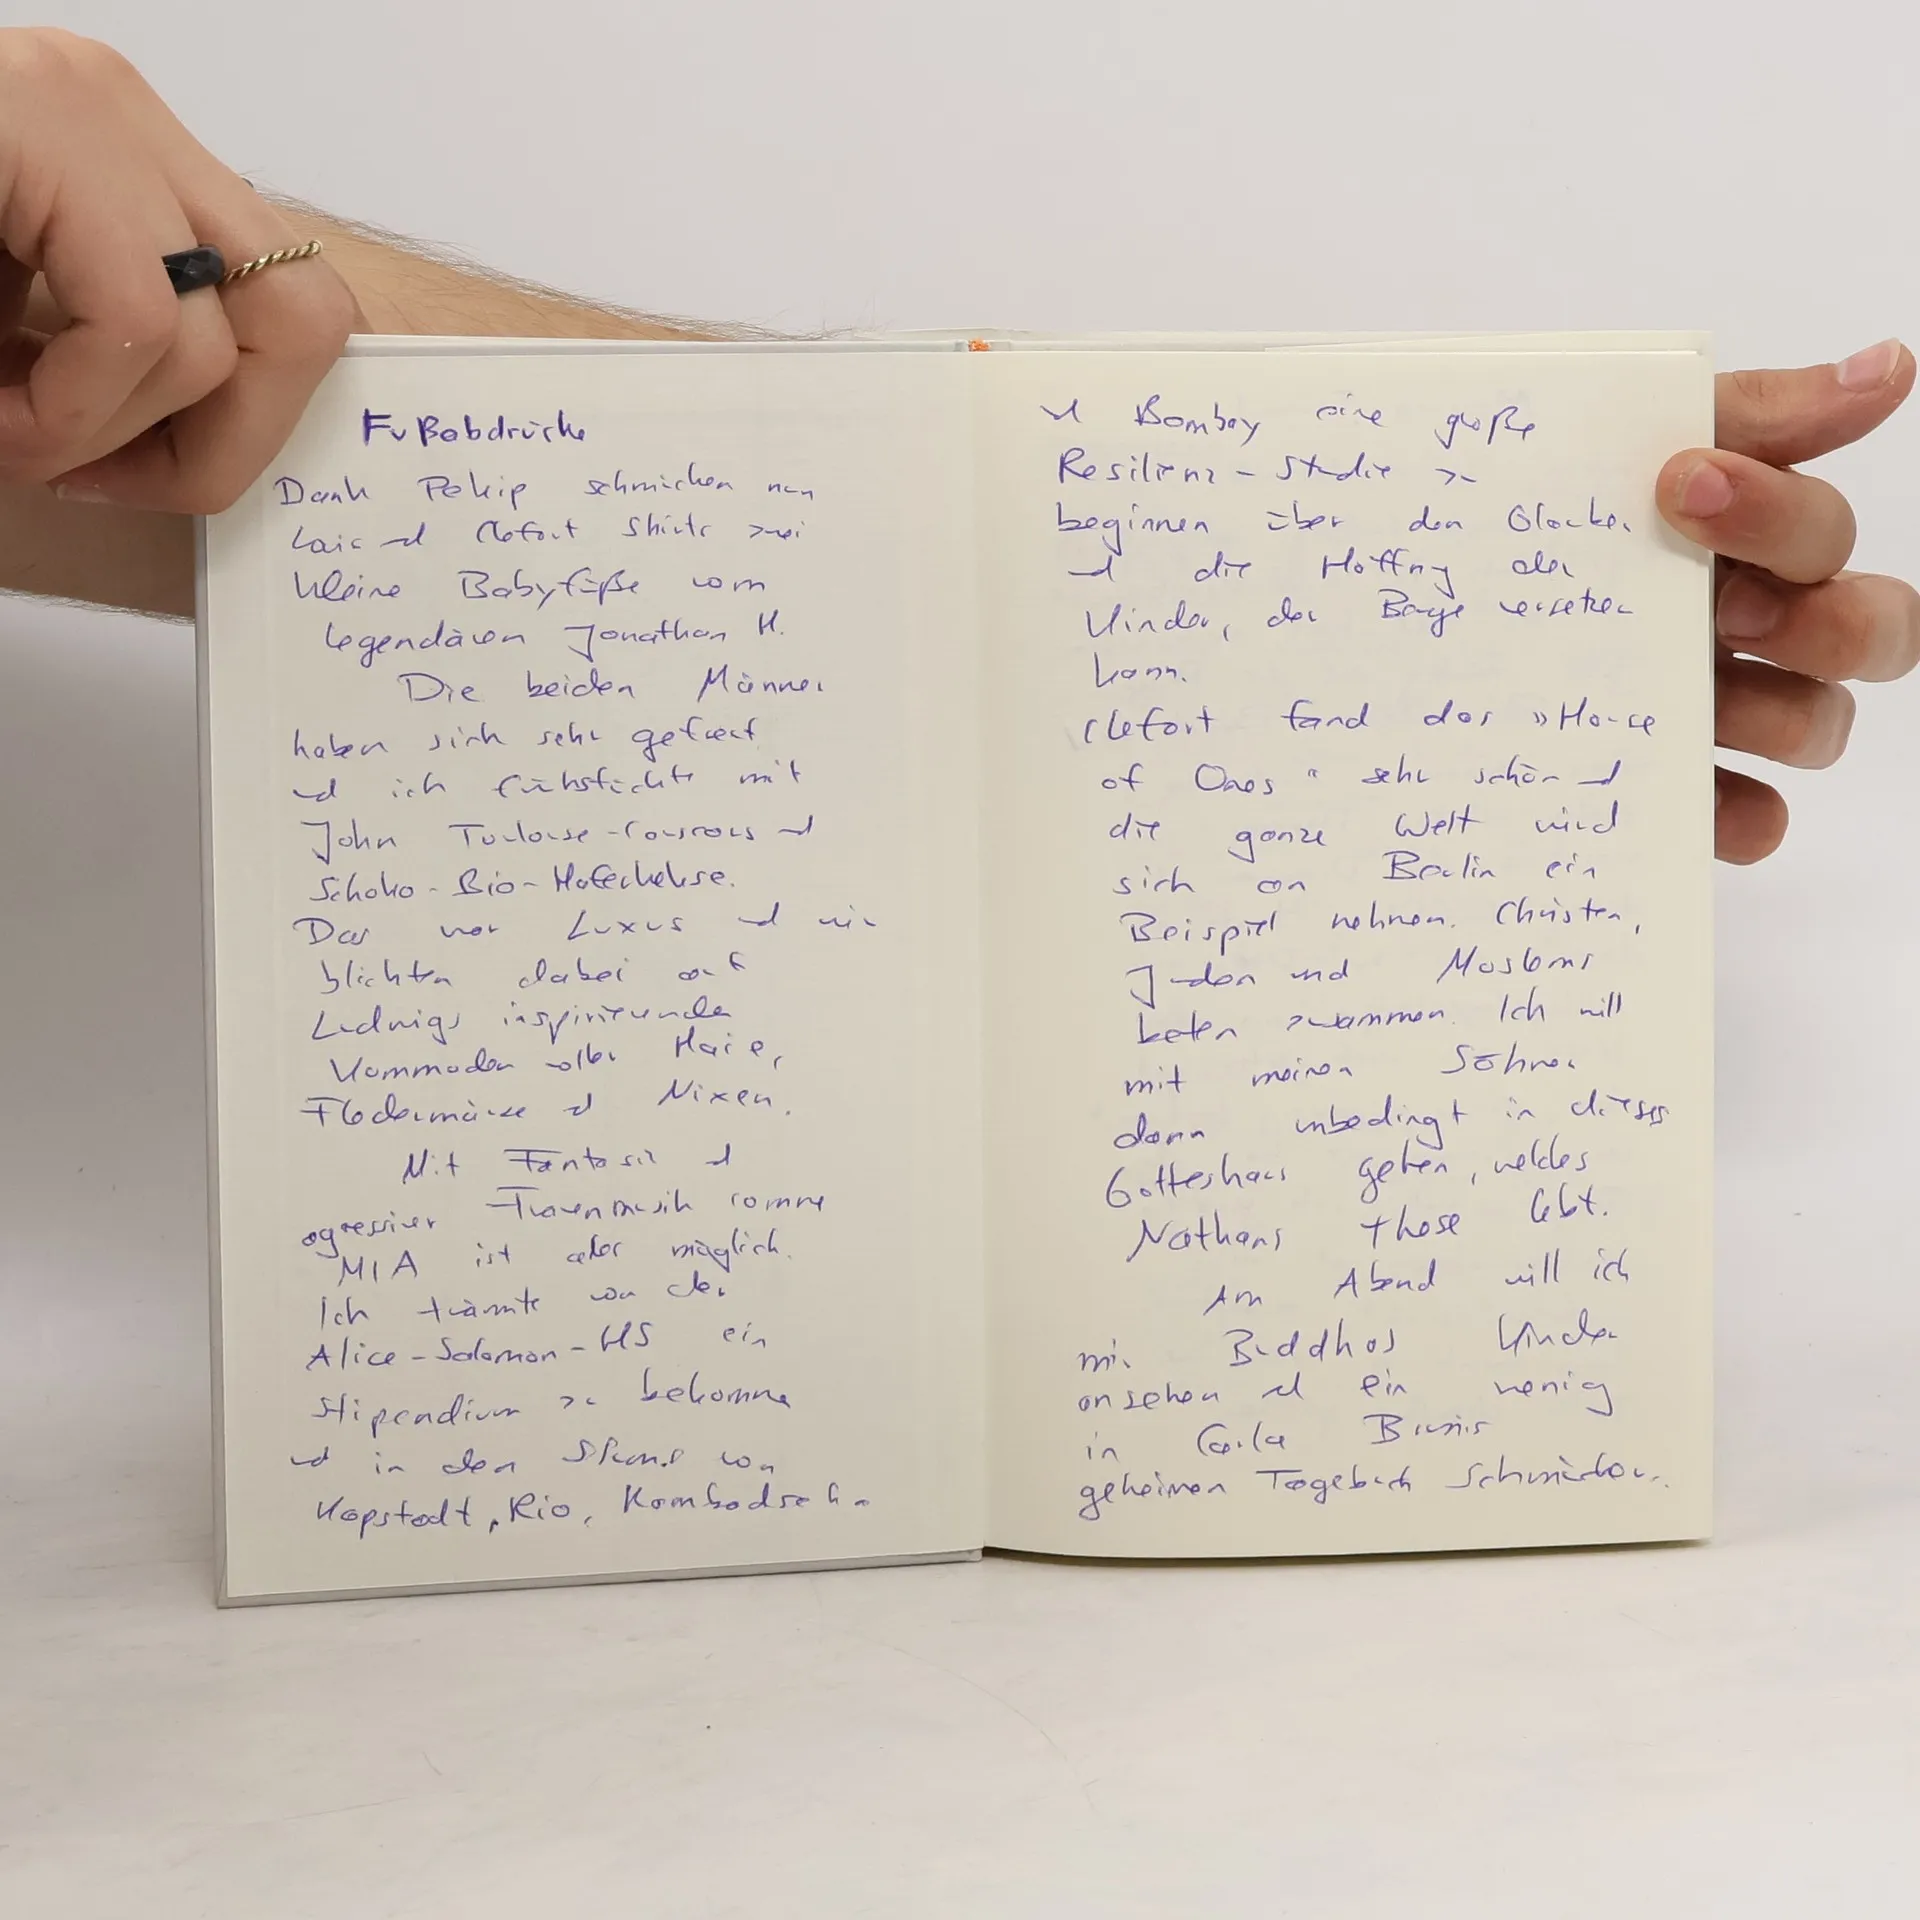 Fußabdrücke
Dank Pekip schmücken nun
Clefort Shirts zwei
kleine Babyfüße vom
legendären Jonathan H.
Die beiden Männer
haben sich sehr gefreut
und ich frühstückte mit
John Toulouse-Couscous und
Schoko-Bio-Haferkekse.
Das war Luxus und wir
blickten dabei auf
Ludwigs inspirierende
Kommoden voller Haie,
Fledermäuse und Nixen.
Mit Fantasie und
agressiver Frauenmusik
MIA ist aber möglich.
Ich träumte von der
Alice-Salomon-HS ein
Stipendium zu bekommen
und in den Slums von
Kapstadt, Rio, Kambodscha
und Bombay eine große
Resilienz-Studie zu
beginnen über den Glauben
und die Hoffnung der
Kinder, der Berge versetzen
kann.
Clefort fand das »House
of Ones" sehr schön und
die ganze Welt wird
sich an Berlin ein
Beispiel nehmen. Christen,
Juden und Moslems
beten zusammen. Ich will
mit meinen Söhnen
dann unbedingt in dieses
Gotteshaus gehen, welches
Nathans These lebt.
Am Abend will ich
mir Buddhas Kinder
ansehen und ein wenig
in Carla Brunis
geheimen Tagebuch schmökern.